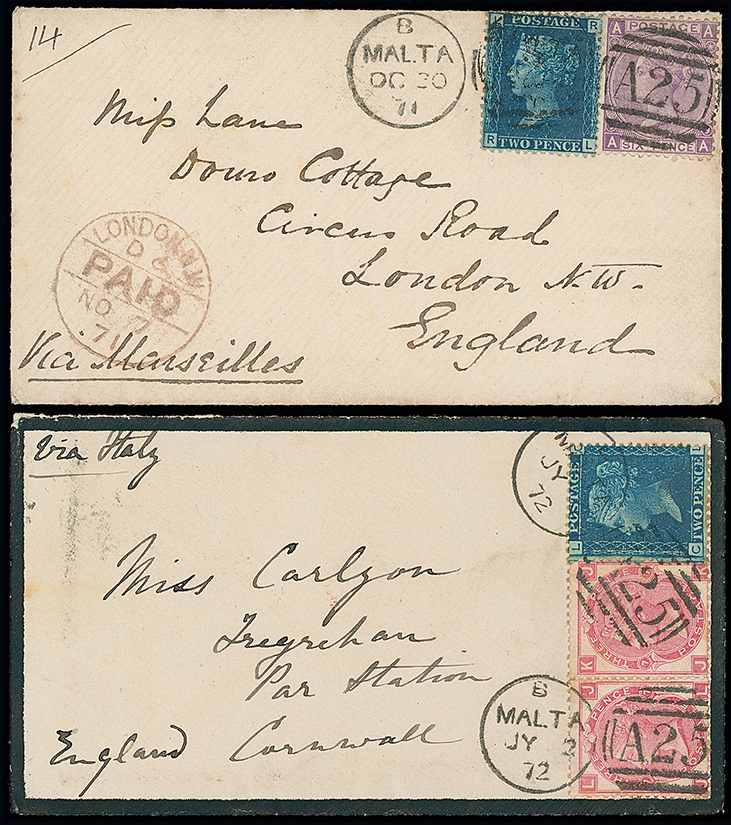 14
B
MALTA
OC 30
71
K R
POSTAGE
R L
TWO PENCE
A A
POSTAGE
A25
A A
SIX PENCE
Miss Lane
Douro Cottage
Circus Road
London N.W.
England
LONDON N.W
PAID
NO 7
71
Via Marseilles
via Italy
JY
72
POSTAGE
TWO PENCE
L C
Miss Carlyon
Tregrehan
Par Station
England Cornwall
25
J K
THREE
POSTA
K J
B
MALTA
JY 2
72
J L
PENCE
A25
L J